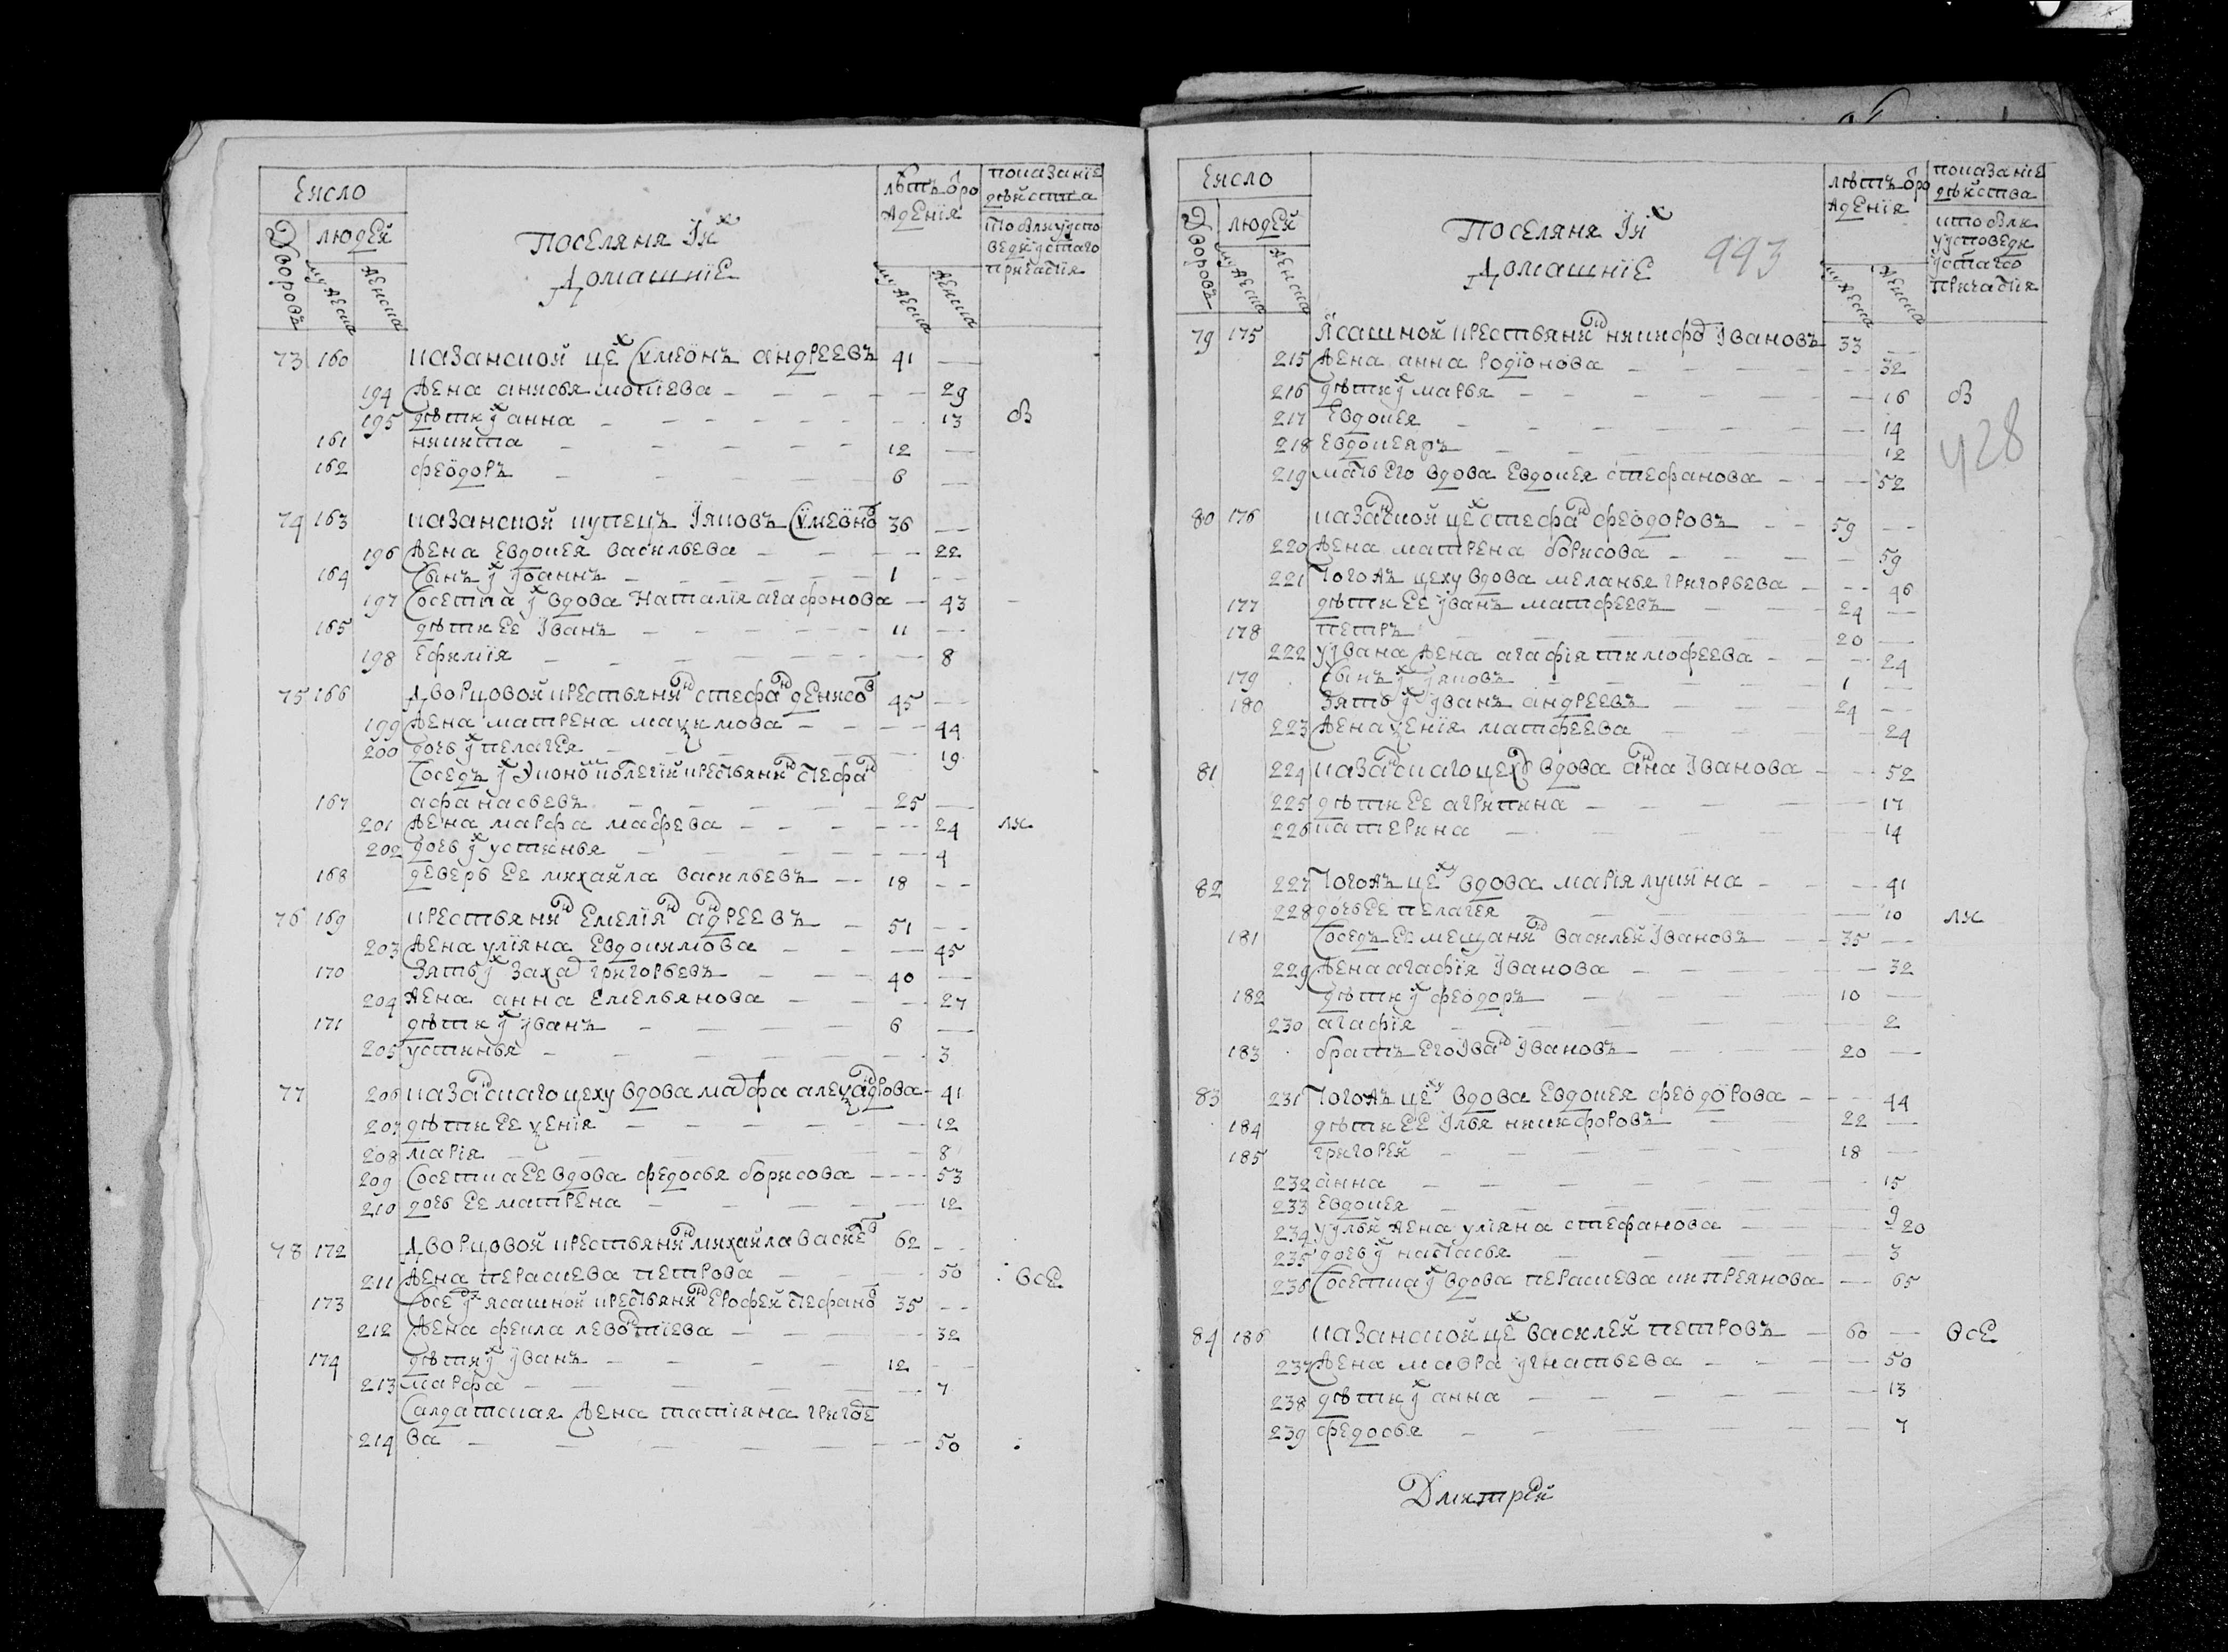 Число
Дворовъ
людей
мужеска
женска
Поселяня Їх
Домашнїе
лѣтъ ѿ ро
жденїя
мужеска
женска
показанїе
дѣйства
кто былъ у испо
веди и святаго
причастїя
73 160 казанской цех симеонъ андреевъ 41
194 жена анисья мотїева 29
195 дѣти их анна 13 об
161 никита 12
162 феодоръ 6
74 163 казанской купецъ Їяковъ симеонов 36
196 жена евдокея васильева 22
164 сынъ их иоаннъ 1
197 соседка их вдова наталїя агафонова 43
165 дѣти ее Їванъ 11
198 ефимїя 8
75 166 дворцовой крестьянин стефан денисов 45
199 жена матрена маѯимова 44
200 дочь их пелагея 19
соседъ их Экономической коллегїи крестьянин стефан
167 афанасьевъ 25
201 жена марфа матфева 24 лж
202 дочь их устинья 4
168 деверь ее михайла васильевъ 18
76 169 крестьянин емелїян андреевъ 51
203 жена улїяна евдокимова 45
170 зять их захар григорьевъ 40
204 жена анна емельянова 27
171 дѣти их иванъ 6
205 устинья 3
77 206 казанскаго цеху вдова марфа алеѯандрова 41
207 дѣти ее ѯенїя 12
208 марїя 8
209 соседка ее вдова федосья борисова 53
210 дочь ее матрена 12
78 172 дворцовой крестьянин михайла васильев 62
211 жена пераскева петрова 50 все
173 сосед их ясашной крестьянин ерофей стефанов 35
212 жена фекла левонтїева 32
174 дѣти их иванъ 12
213 марфа 7
салдатская жена татїяна григорье
214 ва 50
Число
Дворовъ
людей
мужеска
женска
Поселяня Їх
Домашнїе
443
лѣтъ ѿ ро
жденїя
мужеска
женска
показанїе
дѣйства
кто былъ
у исповеди
и святаго
причастїя
79 175 Ясашной крестьянин никифор Ївановъ 33
215 жена анна родїонова 32
216 дѣти их марья 16 об
217 Евдокея 14
218 Евдокея 12
428
219 мать его вдова евдокея стефанова 52
80 176 казанской цех стефан феодоровъ 59
220 жена матрена борисова 59
221 тогожъ цеху вдова меланья григорьева 46
177 дѣти ее иванъ матфеевъ 24
178 петръ 20
222 у ивана жена агафїя тимофеева 24
179 сынъ их їяковъ 1
180 зять их иванъ андреевъ 24
223 жена ѯенїя матфеева 24
81 224 казанскаго цеху вдова анна Їванова 52
225 дѣти ее агрипина 17
226 катерина 14
82 227 тогожъ цеху вдова марїя лукина 41
228 дочь ее пелагея 10 лж
181 соседъ ее мещанин василей Ївановъ 35
229 жена агафїя Їванова 32
182 дѣти их феодоръ 10
230 агафїя 2
183 братъ его Їван Ївановъ 20
83 231 тогожъ цеху вдова евдокея феодорова 44
184 дѣти ее Їлья никифоровъ 22
185 григорей 18
232 анна 15
233 евдокея 9
234 у ильи жена улїяна стефанова 20
235 дочь их настасья 3
236 соседка их вдова пераскева кипреянова 65
84 186 казанской цех василей петровъ 60 все
237 жена мавра игнатьева 50
238 дѣти их анна 13
239 федосья 7
Дмитрей